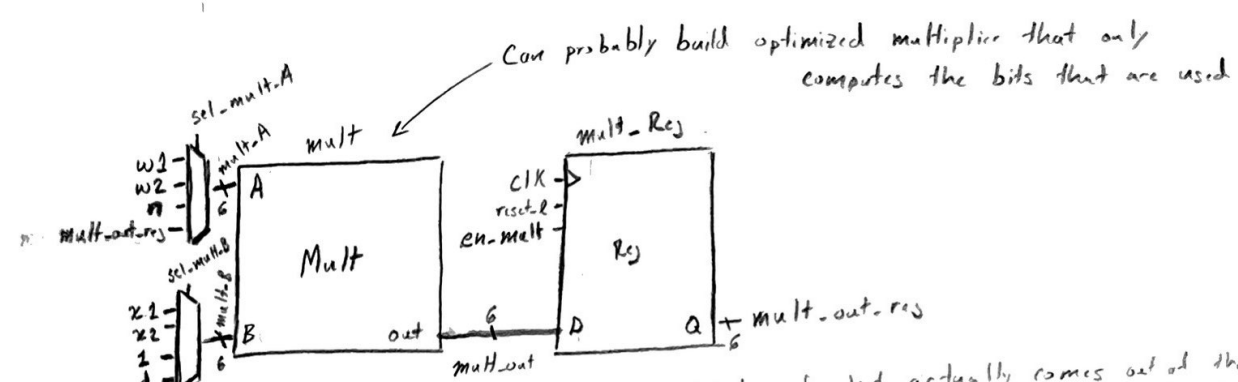 Can probably build optimized multiplier that only
computes the bits that are used
sel_mult_A
mult_A
mult
mult_Reg
w1
w2
n
mult_out_reg
6
A
clk
reset_l
en_mult
Mult
Reg
sel_mult_B
mult_B
x1
x2
1
6
B
out
6
mult_out
D
Q
6
mult_out_reg
actually comes out of